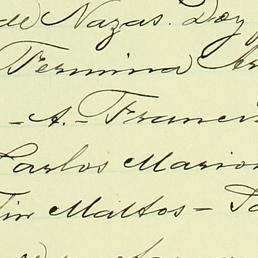 de Nazas. Doy
Fermina Ar
- A. - Franci
Carlos Marion
Tin Mattos -